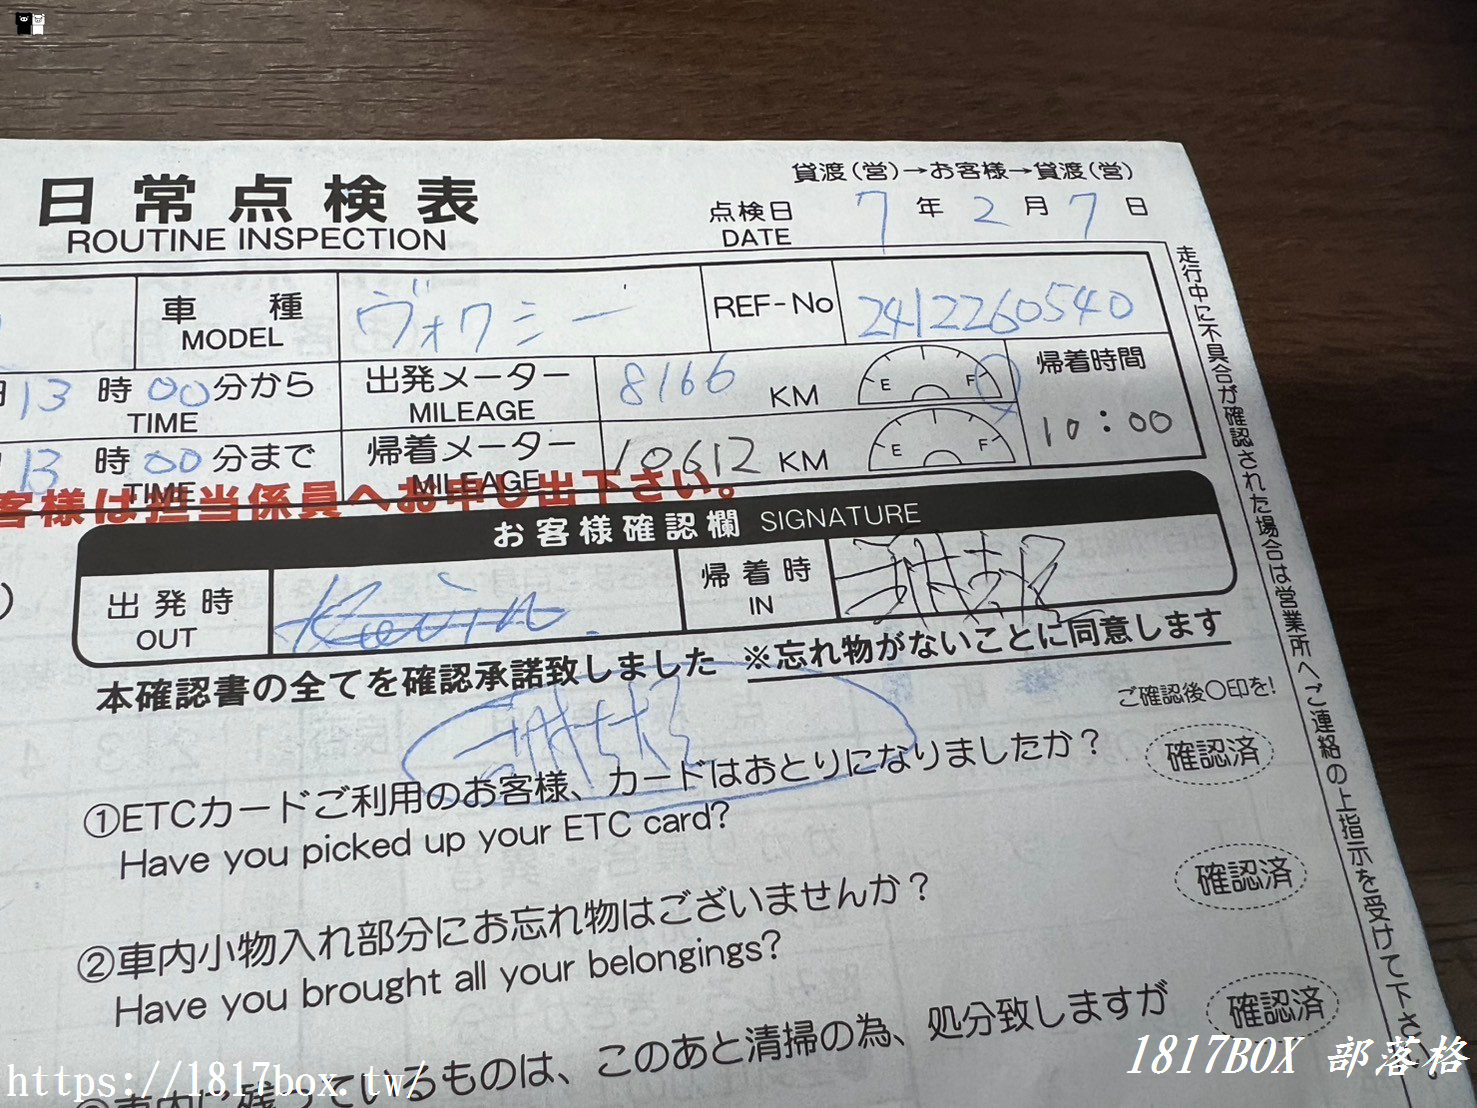 貸渡(営)→お客様→貸渡(営)
日常点検表
ROUTINE INSPECTION
点検日 7年2月7日
DATE
車種 ヴォクシー REF-No 2412260540
MODEL
13時00分から 出発メーター 8166 KM E F 帰着時間
TIME MILEAGE
13時00分まで 帰着メーター 10612 KM E F 10:00
TIME MILEAGE
客様は担当係員へお申し出下さい。
お客様確認欄 SIGNATURE
出発時 帰着時
OUT IN
本確認書の全てを確認承諾致しました ※忘れ物がないことに同意します
ご確認後〇印を!
①ETCカードご利用のお客様、カードはおとりになりましたか? 確認済
Have you picked up your ETC card?
②車内小物入れ部分にお忘れ物はございませんか? 確認済
Have you brought all your belongings?
車内に残っているものは、このあと清掃の為、処分致しますが 確認済
走行中に不具合が確認された場合は営業所へご連絡の上指示を受けて下さい
https://1817box.tw/
1817BOX 部落格